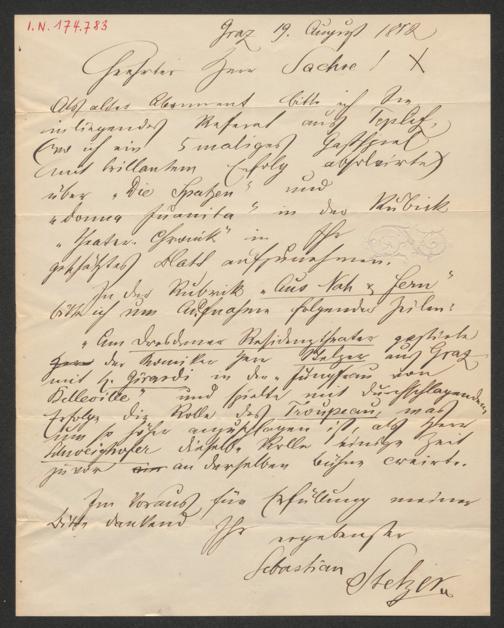 I.N. 174.783
Graz 19. August 18
Geehrter Herr Sachse! X
Als alter Abonnent bitte ich Sie
inliegendes Referat aus Teplitz,
(wo ich ein 5 maliges Gastspiel
mit brillantem Erfolg absolvirte)
über "Die Spatzen" und
"Donna Juanita" in der Rubrik
"Theater-Chronik" in Ihr
geschätztes Blatt aufzunehmen.
In der Rubrik "Aus Nah & Fern"
bitte ich um Aufnahme folgender Zeilen:
"Am Dresdener Residenztheater gastirte
der Komiker Herr Stelzer aus Graz
mit Girardi in der "Jungfrau von
Belleville" und spielte mit durchschlagendem
Erfolge die Rolle des Troupeau, was
um so höher anzuschlagen ist, als Herr
Schweighofer dieselbe Rolle einige Zeit
zuvor an derselben Bühne creirte.
Im Voraus für Erfüllung meiner
Bitte dankend Ihr
ergebenster
Sebastian Stelzer